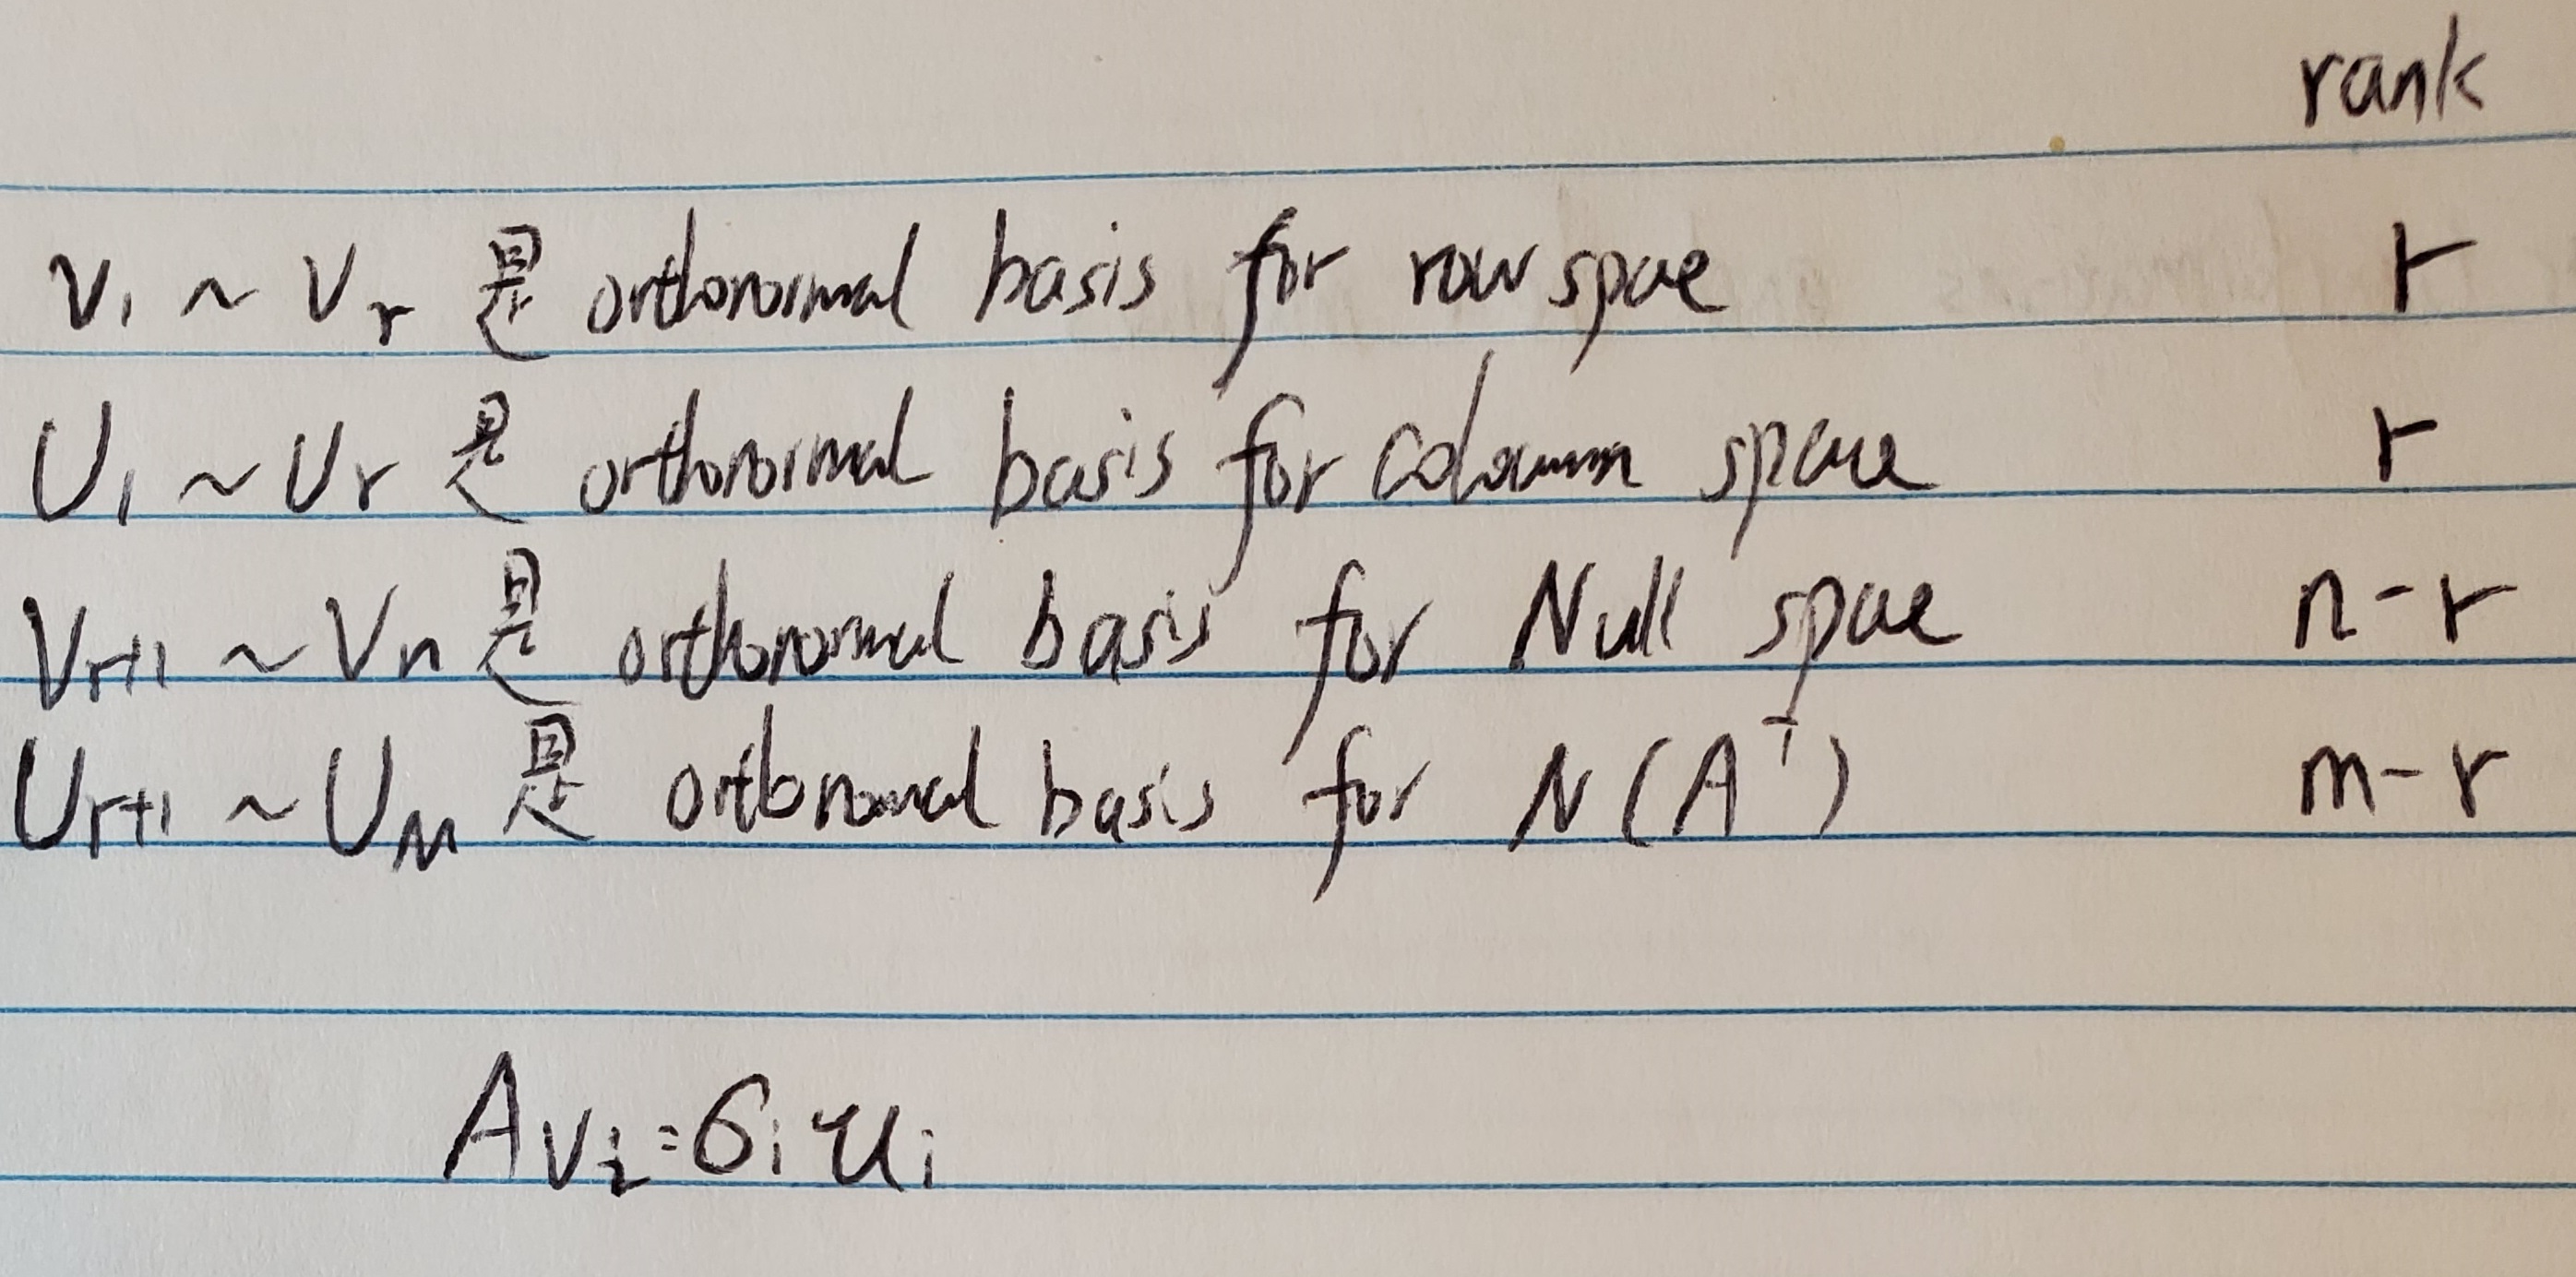 rank
v₁ ~ vᵣ 是 orthonormal basis for row space r
U₁ ~ Ur 是 orthonormal basis for coloumn space r
Vr+1 ~ Vn 是 orthonormal basis for Null space n-r
Ur+1 ~ UM 是 orthonormal basis for N(Aᵀ) m-r
Avi=σiui